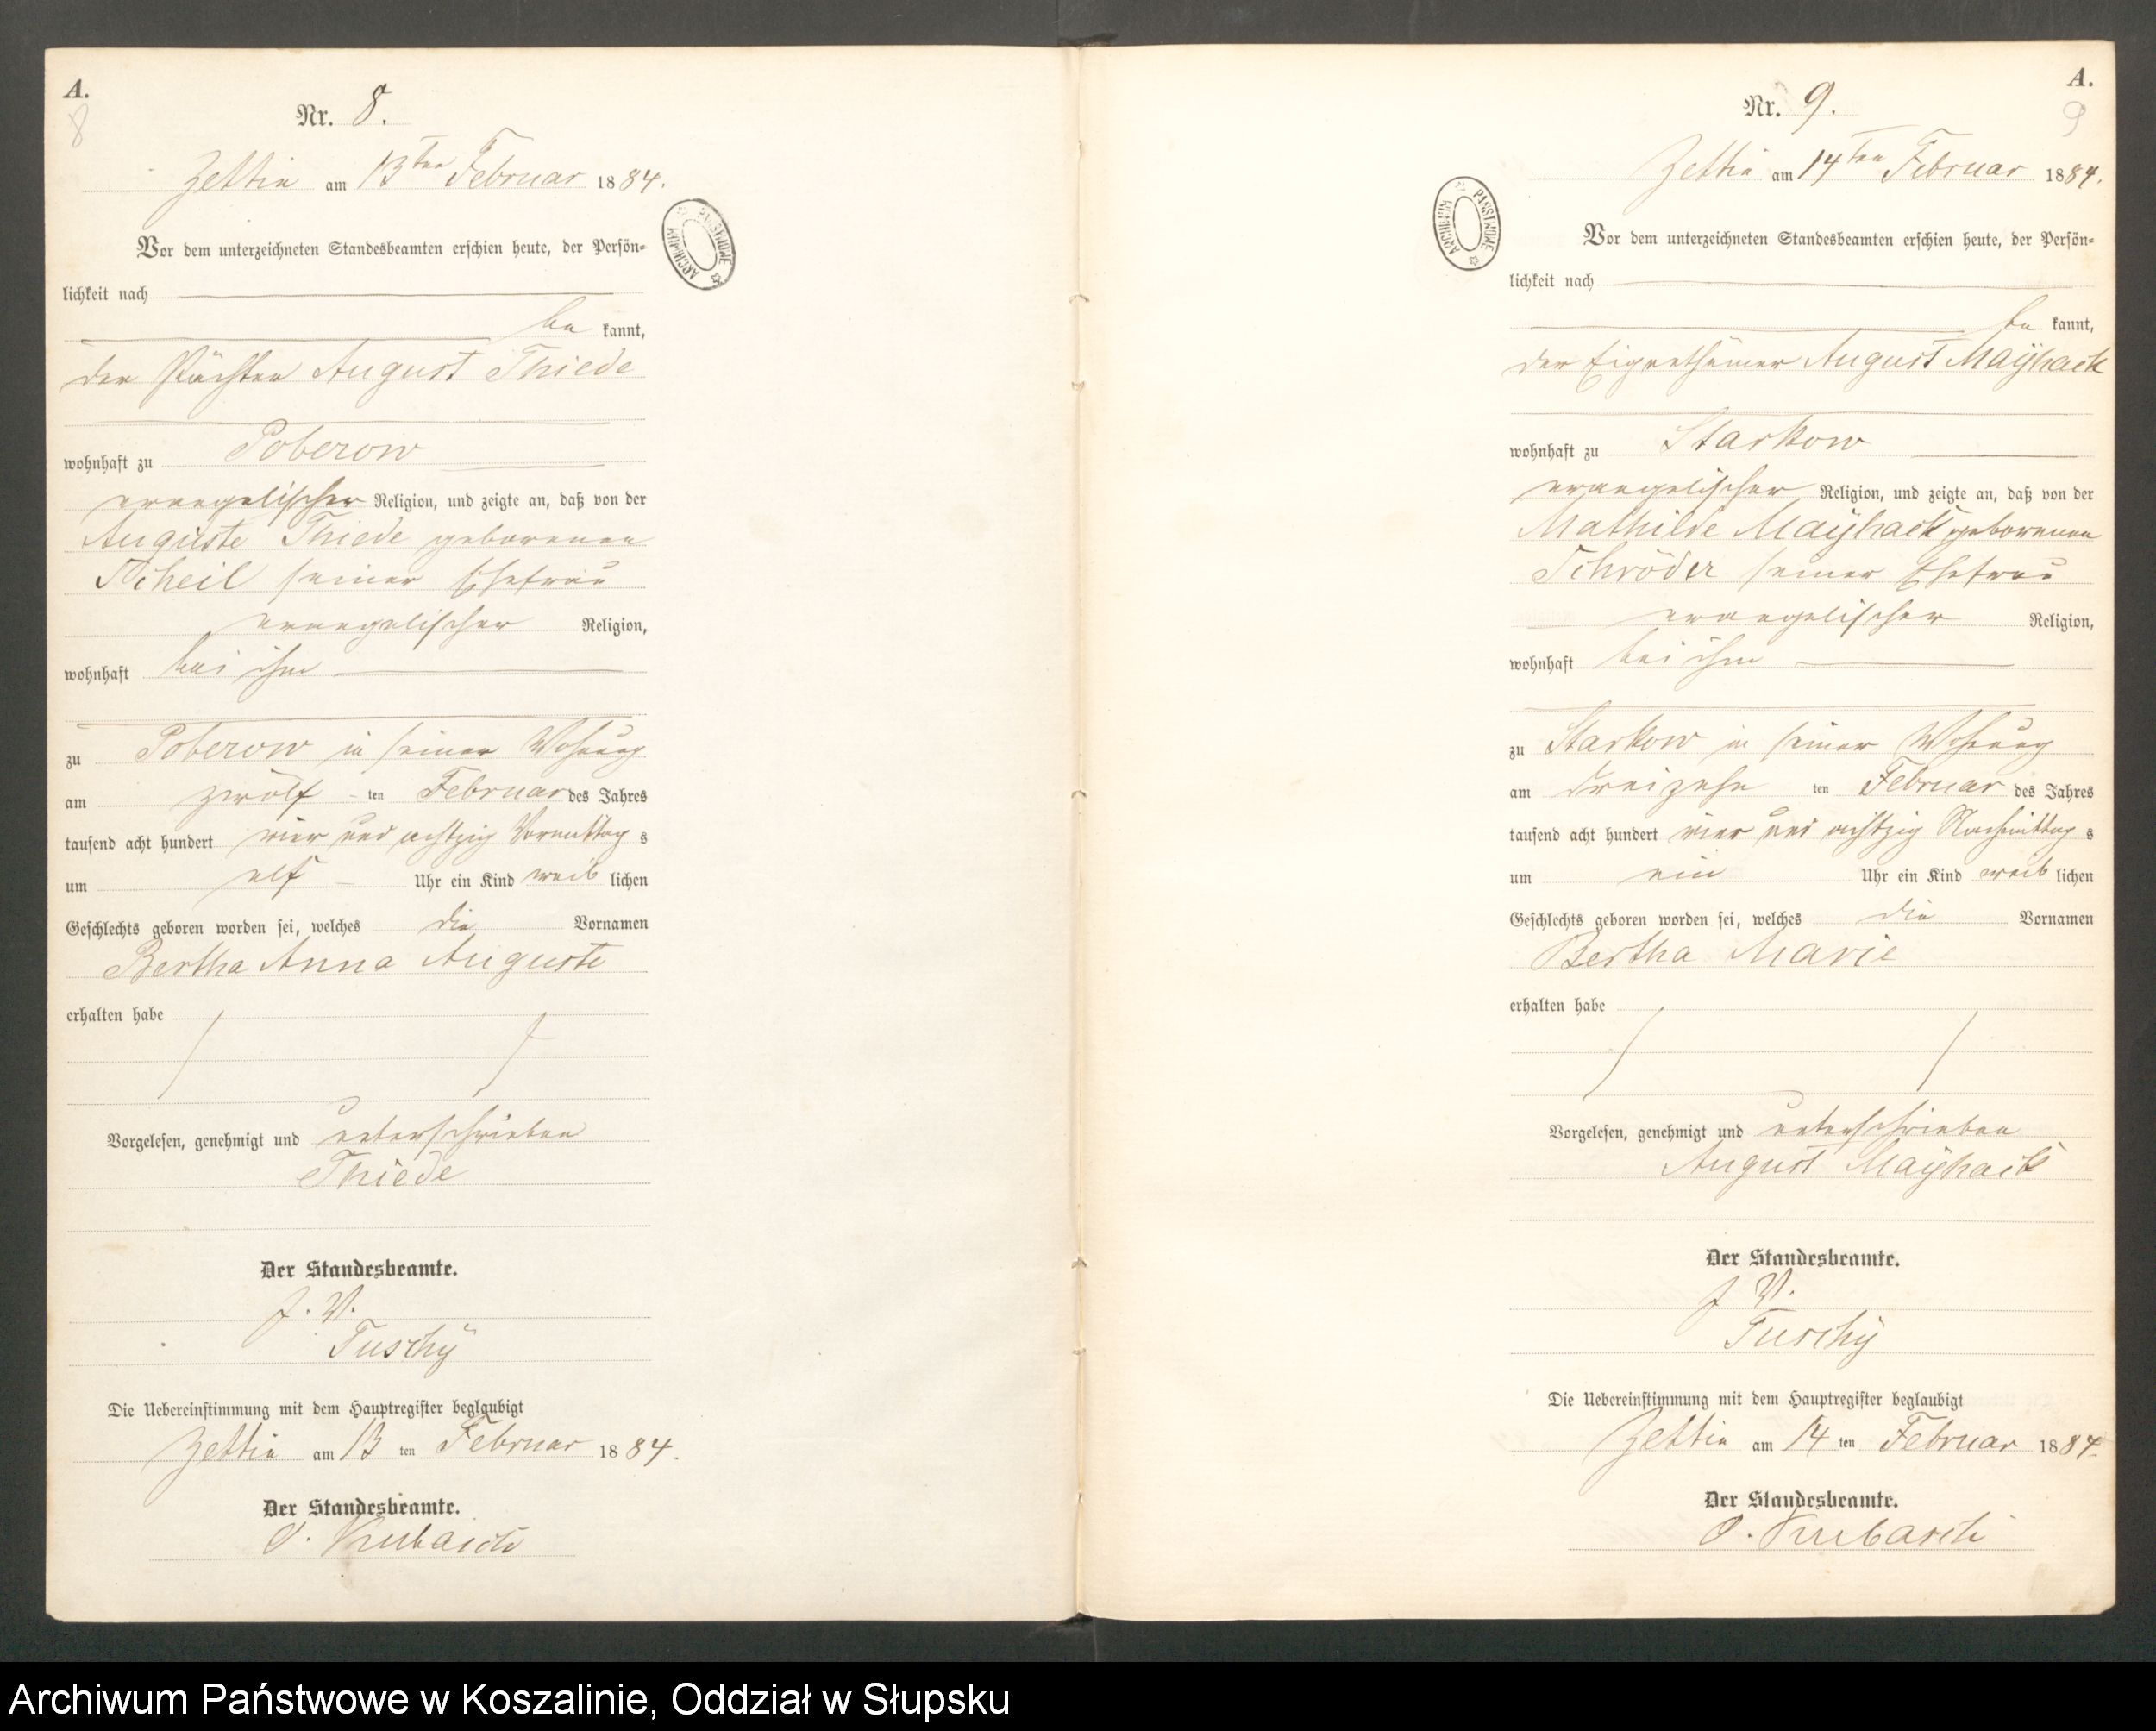 A.
8
Nr. 8.
Zettin am 13ten Februar 1884.
Vor dem unterzeichneten Standesbeamten erschien heute, der Persön-
lichkeit nach
be kannt,
der Pächter August Thiede
wohnhaft zu Poberow
evangelischer Religion, und zeigte an, daß von der
Auguste Thiede geborenen
Scheil seiner Ehefrau
evangelischer Religion,
wohnhaft bei ihm
zu Poberow in seiner Wohnung
am zwölf ten Februar des Jahres
tausend acht hundert vier und achtzig Vormittag s
um elf Uhr ein Kind weib lichen
Geschlechts geboren worden sei, welches die Vornamen
Bertha Anna Auguste
erhalten habe
Vorgelesen, genehmigt und unterschrieben
Thiede
Der Standesbeamte.
J. V.
Tuschÿ
Die Uebereinstimmung mit dem Hauptregister beglaubigt
Zettin am 13 ten Februar 1884.
Der Standesbeamte.
ARCHIWUM PAŃSTWOWE
A.
9
Nr. 9.
Zettin am 14ten Februar 1884.
Vor dem unterzeichneten Standesbeamten erschien heute, der Persön-
lichkeit nach
be kannt,
der Eigenthümer August Maÿhack
wohnhaft zu Starkow
evangelischer Religion, und zeigte an, daß von der
Mathilde Maÿhack geborenen
Schröder seiner Ehefrau
evangelischer Religion,
wohnhaft bei ihm
zu Starkow in seiner Wohnung
am dreizehn ten Februar des Jahres
tausend acht hundert vier und achtzig Nachmittag s
um ein Uhr ein Kind weib lichen
Geschlechts geboren worden sei, welches die Vornamen
Bertha Marie
erhalten habe
Vorgelesen, genehmigt und unterschrieben
August Maÿhack
Der Standesbeamte.
J. V.
Tuschÿ
Die Uebereinstimmung mit dem Hauptregister beglaubigt
Zettin am 14 ten Februar 1884.
Der Standesbeamte.
ARCHIWUM PAŃSTWOWE
Archiwum Państwowe w Koszalinie, Oddział w Słupsku